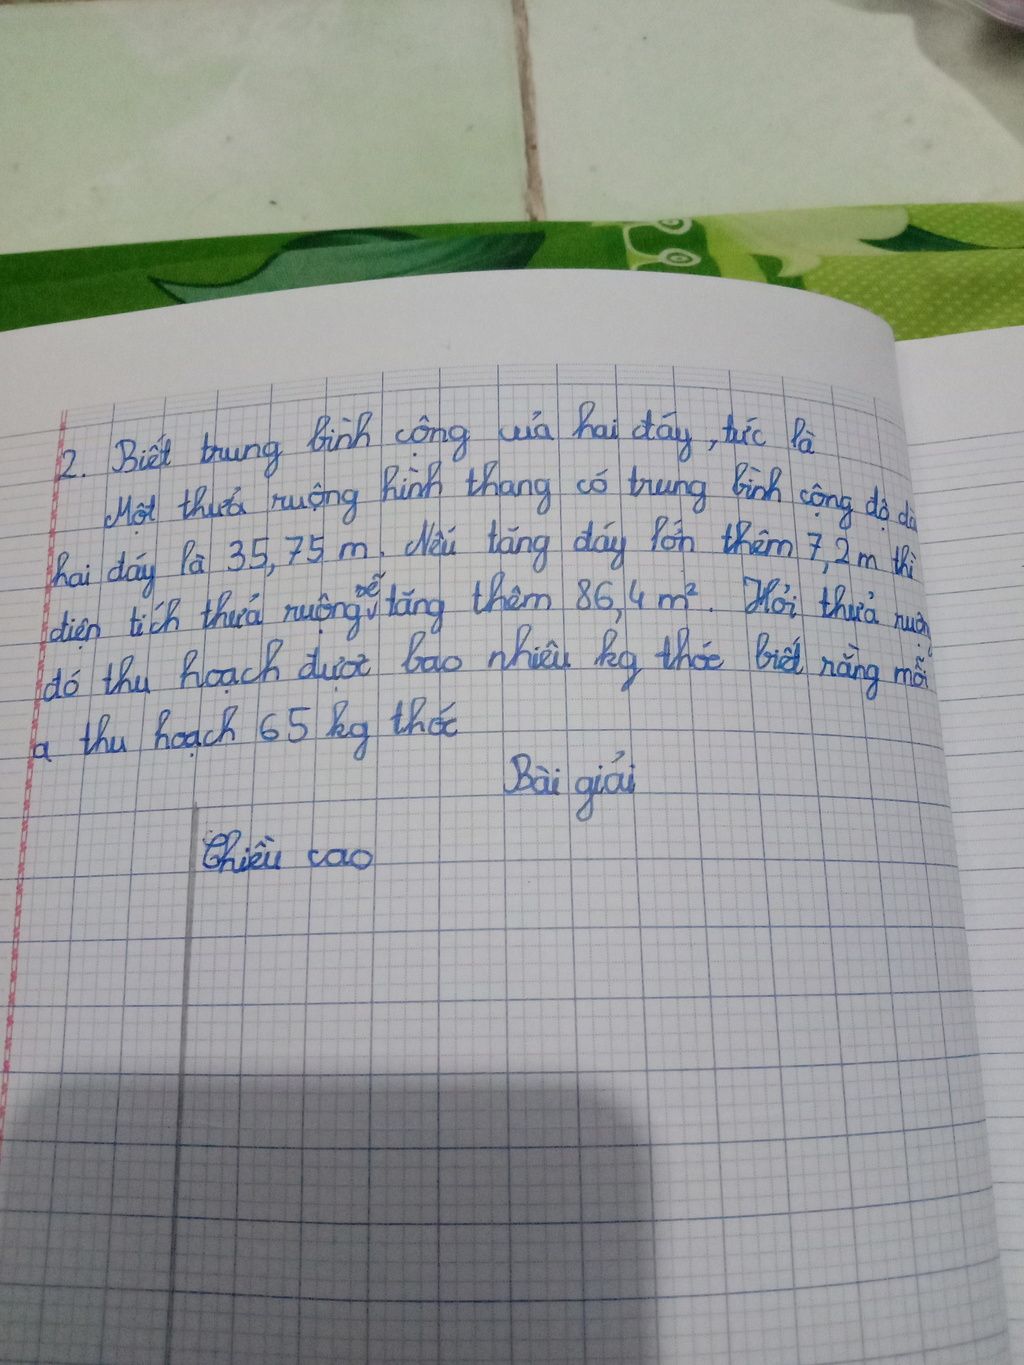 2. Biết trung bình cộng của hai đáy, tức là
Một thuả ruộng hình thang có trung bình cộng độ dà
hai đáy là 35,75 m. Nếu tăng đáy lớn thêm 7,2 m thì
diện tích thuả ruộng sẽ tăng thêm 86,4 m². Hỏi thuả ruộng
đó thu hoạch được bao nhiêu kg thóc biết rằng mỗi
a thu hoạch 65 kg thóc
Bài giải
Chiều cao